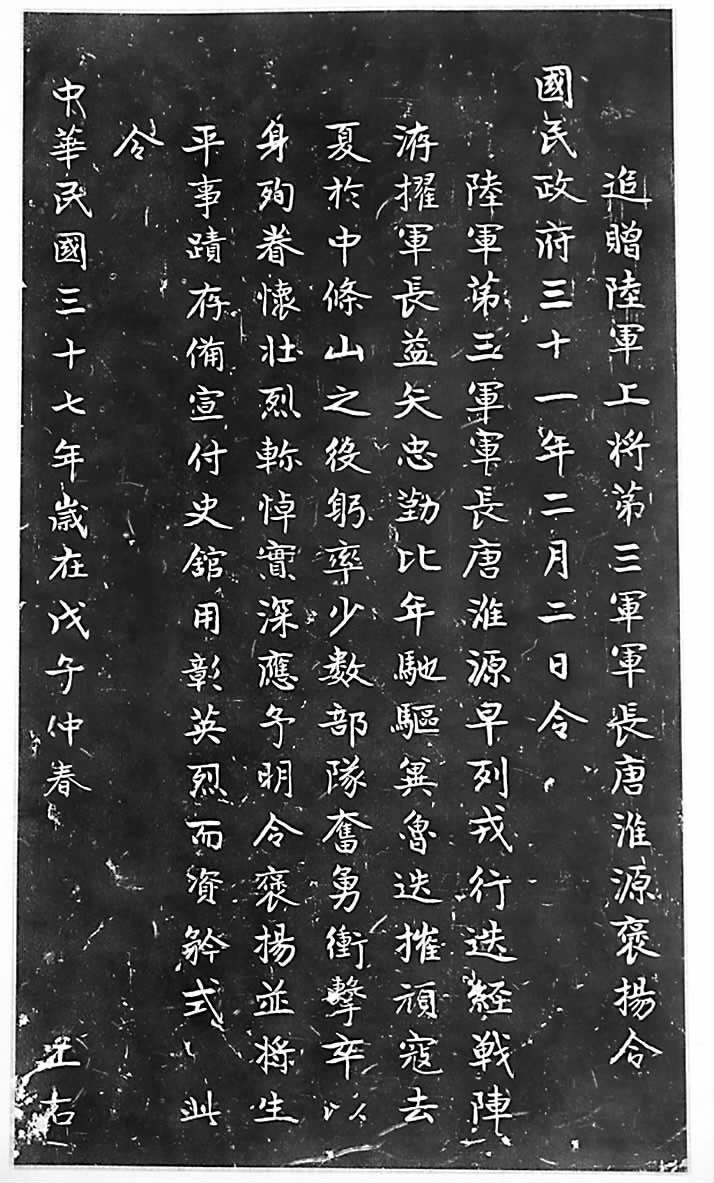 追贈陸軍上將第三軍軍長唐淮源褒揚令
國民政府三十一年二月二日令
陸軍第三軍軍長唐淮源早列戎行迭經戰陣
洊擢軍長益矢忠勤比年馳驅冀魯迭摧頑寇去
夏於中條山之役躬率少數部隊奮勇衝擊卒以
身殉眷懷壯烈軫悼實深應予明令褒揚並將生
平事蹟存備宣付史館用彰英烈而資矜式 此
令
中華民國三十七年歲在戊子仲春 王右